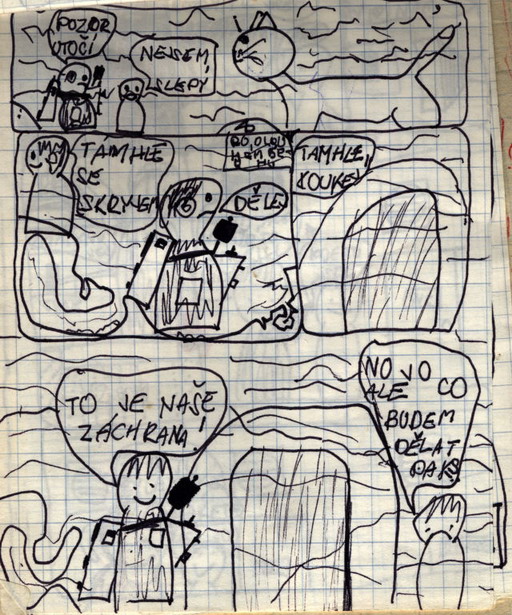 POZOR
ÚTOČÍ
NEJSEM
SLEPÝ
TAMHLE
SE
SKRYJEM
DĚLEJ
TAMHLE,
KOUKEJ
TO JE NAŠE
ZÁCHRANA!
NO JO
ALE CO
BUDEM
DĚLAT
PAK?